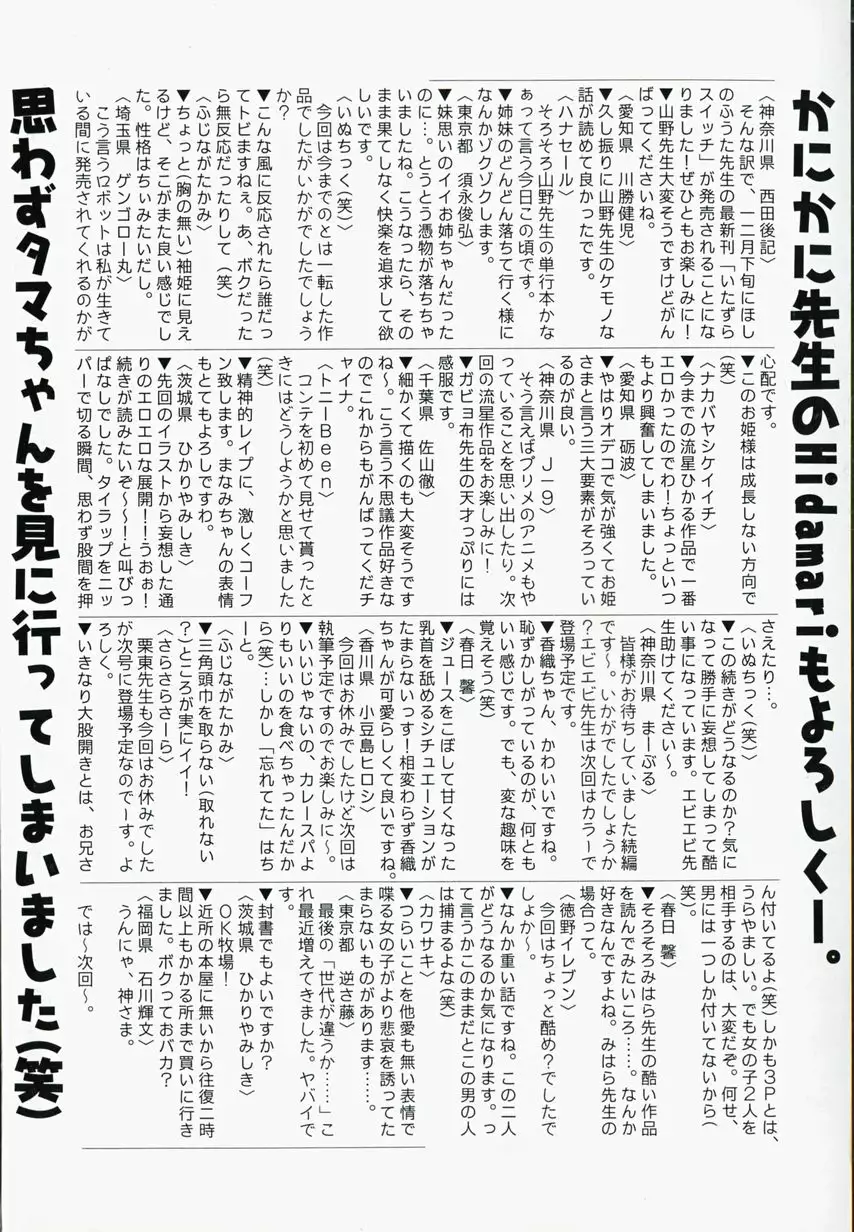 かにかに先生のHidamariもよろしくー。
〈神奈川県　西田後記〉
　そんな訳で、一二月下旬にほし
のふうた先生の最新刊「いたずら
スイッチ」が発売されることにな
りました！ぜひともお楽しみに！
▼山野先生大変そうですけどがん
ばってくださいね。
〈愛知県　川勝健児〉
▼久し振りに山野先生のケモノな
話が読めて良かったです。
〈ハナセール〉
　そろそろ山野先生の単行本かな
ぁって言う今日この頃です。
▼姉妹のどんどん落ちて行く様に
なんかゾクゾクします。
〈東京都　須永俊弘〉
▼妹思いのイイお姉ちゃんだった
のに…。とうとう憑物が落ちちゃ
いましたね。こうなったら、その
まま果てしなく快楽を追求して欲
しいです。
〈いぬちっく(笑)〉
　今回は今までのとは一転した作
品でしたがいかがでしたでしょう
か？
▼こんな風に反応されたら誰だっ
てトビますねぇ。あ、ボクだった
ら無反応だったりして(笑)
〈ふじながたかみ〉
▼ちょっと(胸の無い)袖姫に見え
るけど、そこがまた良い感じでし
た。性格はちぃみたいだし。
〈埼玉県　ゲンゴロー丸〉
　こう言うロボットは私が生きて
いる間に発売されてくれるのかが
心配です。
▼このお姫様は成長しない方向で
(笑)
〈ナカバヤシケイイチ〉
▼今までの流星ひかる作品で一番
エロかったのでわ！ちょっといつ
もより興奮してしまいました。
〈愛知県　砺波〉
▼やはりオデコで気が強くてお姫
さまと言う三大要素がそろってい
るのが良い。
〈神奈川県　Ｊ−９〉
　そう言えばプリメのアニメもや
っていることを思い出したり。次
回の流星作品をお楽しみに！
▼ガビョ布先生の天才っぷりには
感服です。
〈千葉県　佐山徹〉
▼細かくて描くのも大変そうです
ね〜。こう言う不思議作品好きな
のでこれからもがんばってくだチ
ャイナ。
〈トニーＢｅｅｎ〉
　コンテを初めて見せて貰ったと
きにはどうしようかと思いました
(笑)
▼精神的レイプに、激しくコーフ
ン致します。まなみちゃんの表情
もとてもよろしですわ。
〈茨城県　ひかりやみしき〉
▼先回のイラストから妄想した通
りのエロエロな展開！！うおぉ！
続きが読みたいぞ〜〜！と叫びっ
ぱなしでした。タイラップをニッ
パーで切る瞬間、思わず股間を押
さえたり…。
〈いぬちっく(笑)〉
▼この続きがどうなるのか？気に
なって勝手に妄想してしまって酷
い事になっています。エビエビ先
生助けてください〜。
〈神奈川県　まーぶる〉
　皆様がお待ちしていました続編
です〜。いかがでしたでしょうか
？エビエビ先生は次回はカラーで
登場予定です。
▼香織ちゃん、かわいいですね。
恥ずかしがっているのが、何とも
いい感じです。でも、変な趣味を
覚えそう(笑)
〈春日　馨〉
▼ジュースをこぼして甘くなった
乳首を舐めるシチュエーションが
たまらないっす！相変わらず香織
ちゃんが可愛らしくて良いですね。
〈香川県　小豆島ヒロシ〉
　今回はお休みでしたけど次回は
執筆予定ですのでお楽しみに〜。
▼いいじゃないの、カレースパよ
りもいいのを食べちゃったんだか
ら(笑)…しかし「忘れてた」はち
ーと。
〈ふじながたかみ〉
▼三角頭巾を取らない(取れない
？)ところが実にイイ！
〈さらさらさーら〉
　栗東先生も今回はお休みでした
が次号に登場予定なのでーす。よ
ろしく。
▼いきなり大股開きとは、お兄さ
ん付いてるよ(笑)しかも３Ｐとは、
うらやましい。でも女の子２人を
相手するのは、大変だぞ。何せ、
男には一つしか付いてないから(
笑)。
〈春日　馨〉
▼そろそろみはら先生の酷い作品
を読んでみたいころ……。なんか
好きなんですよね。みはら先生の
場合って。
〈徳野イレブン〉
　今回はちょっと酷め？でしたで
しょか〜。
▼なんか重い話ですね。この二人
がどうなるのか気になります。っ
て言うかこのままだとこの男の人
は捕まるよな(笑)
〈カワサキ〉
▼つらいことを他愛も無い表情で
喋る女の子がより悲哀を誘ってた
まらないものがあります……。
〈東京都　逆さ藤〉
　最後の「世代が違うか……」こ
れ最近増えてきました。ヤバイで
す。
▼封書でもよいですか？
〈茨城県　ひかりやみしき〉
　ＯＫ牧場！
▼近所の本屋に無いから往復二時
間以上もかかる所まで買いに行き
ました。ボクっておバカ？
〈福岡県　石川輝文〉
　うんにゃ、神さま。
　では〜次回〜。
思わずタマちゃんを見に行ってしまいました(笑)